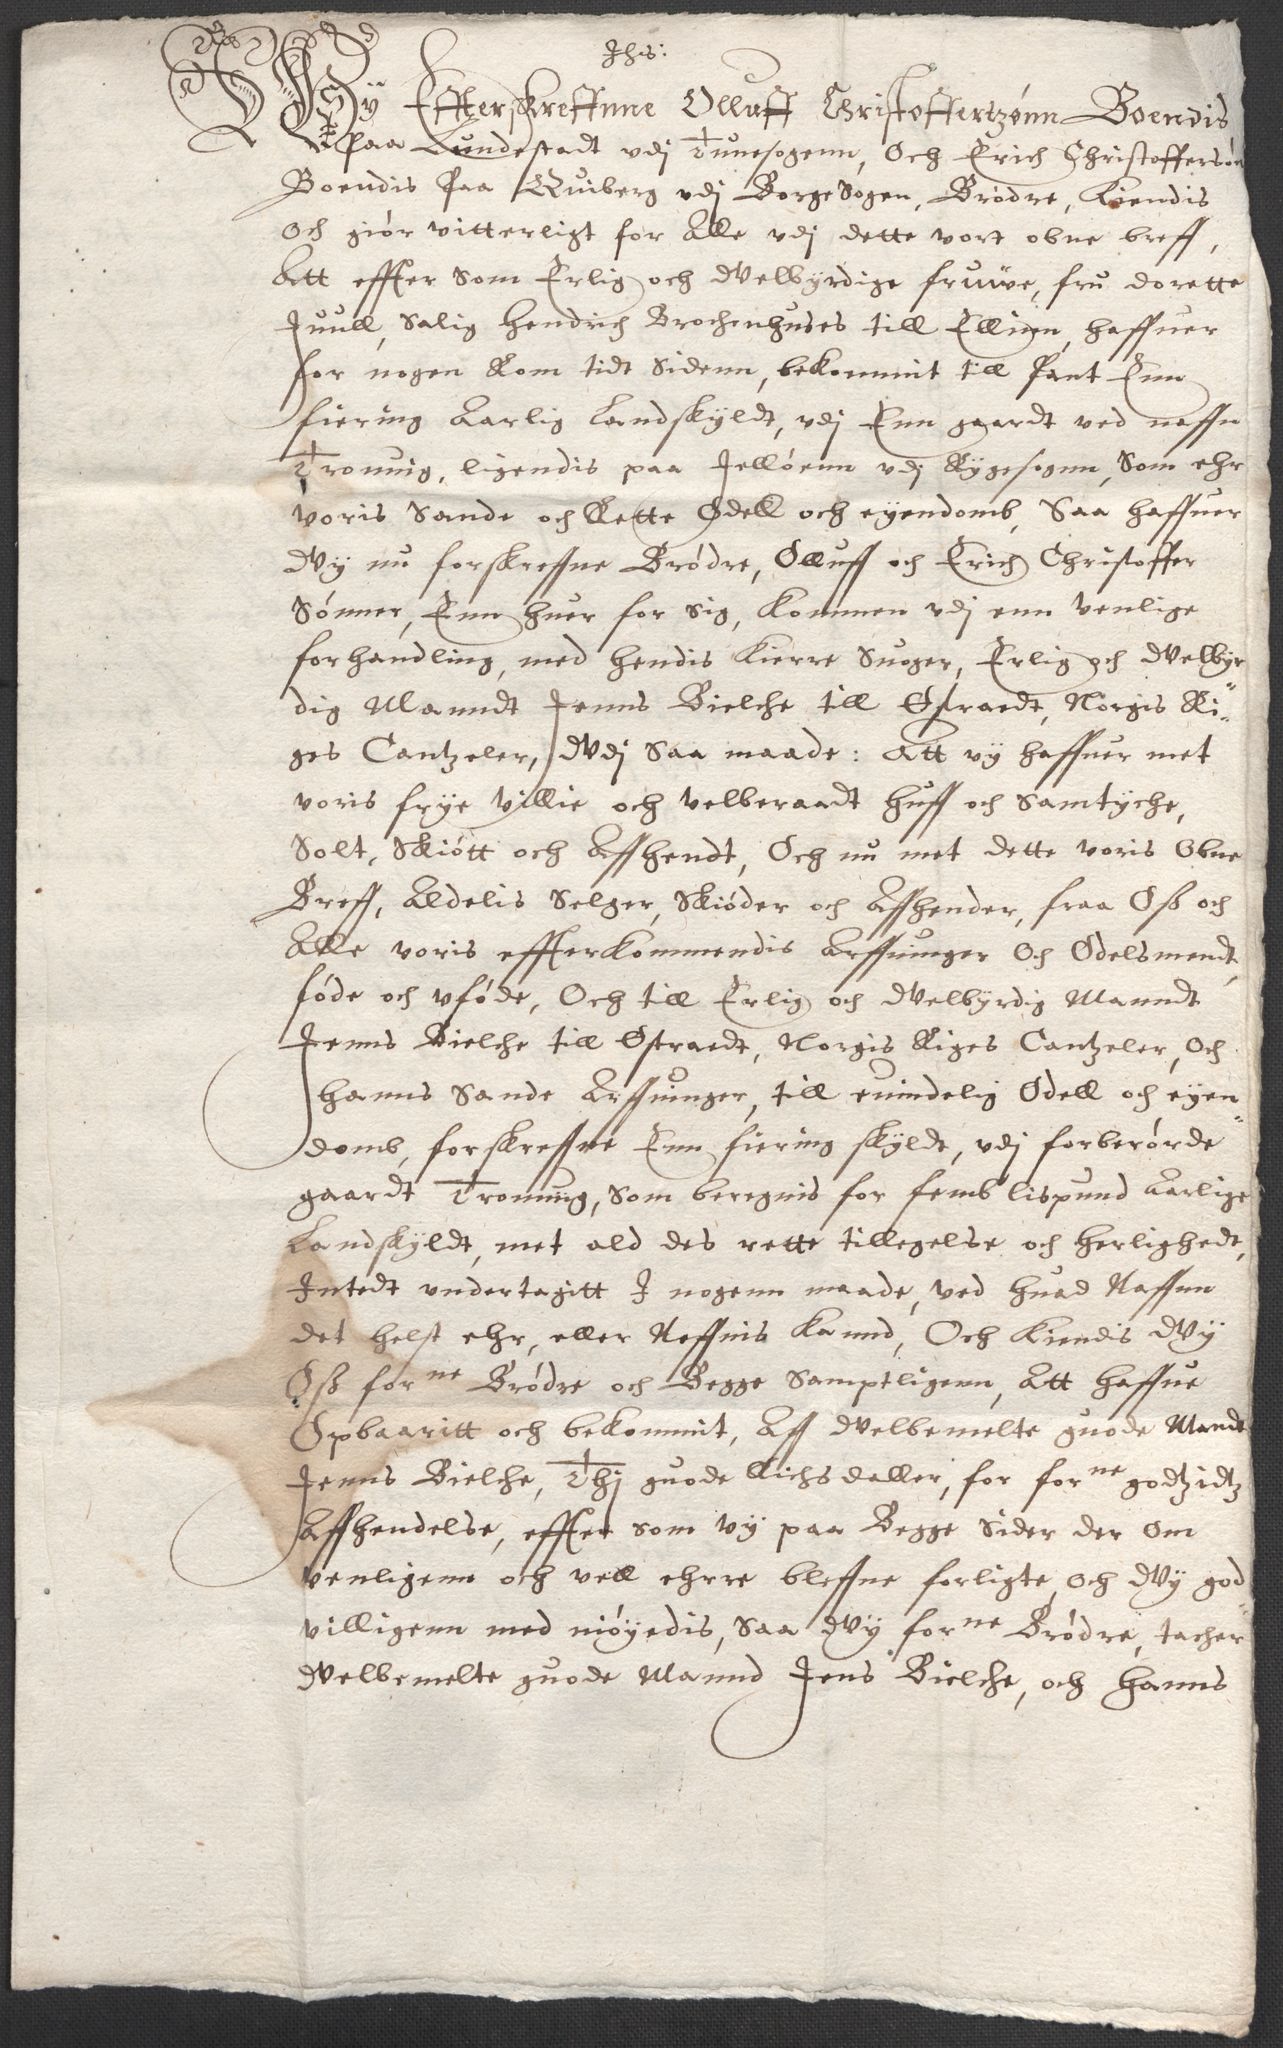 Jhs:
Wÿ Effterskreffnne Olluff Christoffertzønn Boendis
Paa Lundestadt vdj Tunesogenn, Och Erich Christoffersøn
Boendis Paa Quiberg vdj Borge Sogen, Brødre, Kiendis
och giør vitterligt for Alle vdj dette vort obne breff,
Att effter som Erlig och Welbÿrdige fruwe, fru dorette
Juull, Salig Hendrich Brochenhuses till Ellinn, haffuer
for nogen Kom tidt Sidenn, bekommit till Pant Enn
fiering Aarlig Landskÿldt, vdj Enn gaardt ved naffn
Tronuig, ligendis paa Jelløenn vdj Rÿgesognn, Som ehr
voris Sande och Rette Odell och eÿendomb, Saa haffuer
Wÿ nu forskreffne Brødre, Olluff och Erich Christoffer
Sønner, Enn huer for Sig, kommen vdj enn venlige
forhandling, med hendis kierre Suoger, Erlig och Welbÿr
dig Manndt Jenns Bielche till Østraedt, Norgis Ri,,
ges Cantzeler, Vdj Saa maade: Att vÿ haffuer met
voris frÿe villie och velberaadt huff och Samtÿche,
Solt, Skiøtt och Affhendt, Och nu met dette voris Obne
Breff, Aldelis Selger, Skiøder och Affhender, fraa Oß och
Alle voris effterkommendis Arffuinger Och Odelsmendt,
føde och vføde, Och till Erlig och Welbÿrdig Manndt
Jenns Bielche till Østraedt, Norgis Riges Cantzeler, Och
hanns Sande Arffuinger, till euindelig Odell och eÿen,,
domb, forskreffne Enn fiering skÿldt, vdj forberørde
gaardt Tronuig, Som beregnis for femb lispund Aarlige
Landskÿldt, met ald des rette tillegelse och herlighedt,
Intedt vndertagitt J nogenn maade, ved huad Naffnn
det helst ehr, eller Neffnis kannd, Och kiendis Wÿ
Oß forne Brødre och Begge Samptligenn, Att haffue
Opbaaritt och bekommit, Aff Welbemelte guode Mandt
Jenns Bielche, Thj guode Richsdaller, for forne godtzidtz
Affhendelse, effter som vÿ paa Begge Sider der om
venligenn och vell ehrre bleffne forligte, och Wÿ god,,
villigenn med nøÿedis, Saa Wÿ forne Brødre, tacher
Velbemelte guode Mannd Jens Bielche, och hanns